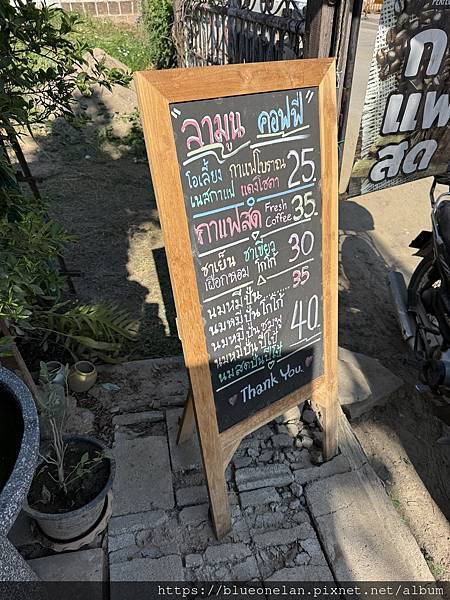 "ลามูน คอฟฟี่"
โอเลี้ยง กาแฟโบราณ
เนสกาแฟ แดงโซดา 25.
กาแฟสด Fresh Coffee 35.
ชาเย็น ชาเขียว
เผือกหอม โกโก้ 30
นมหมีปั่น 35
นมหมีปั่นโกโก้
นมหมีปั่นชมพู 40.
นมหมีปั่น
นมสดปั่น
Thank You.
กาแฟสด
https://www.blueonelan.net/album